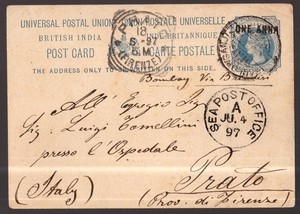 UNIVERSAL POSTAL UNION UNION POSTALE UNIVERSELLE
BRITISH INDIA INDE BRITANNIQUE
POST CARD CARTE POSTALE
ONE ANNA
18
97
(FIRENZE)
THE ADDRESS ONLY TO BE WRITTEN ON THIS SIDE.
Bombay Via Brindisi
All' Egregio Sig
Sig. Luigi Tomellini
presso l'Ospedale
SEA POST OFFICE
A
JU. 4
97
Prato
(Italy) (Prov. di Firenze)